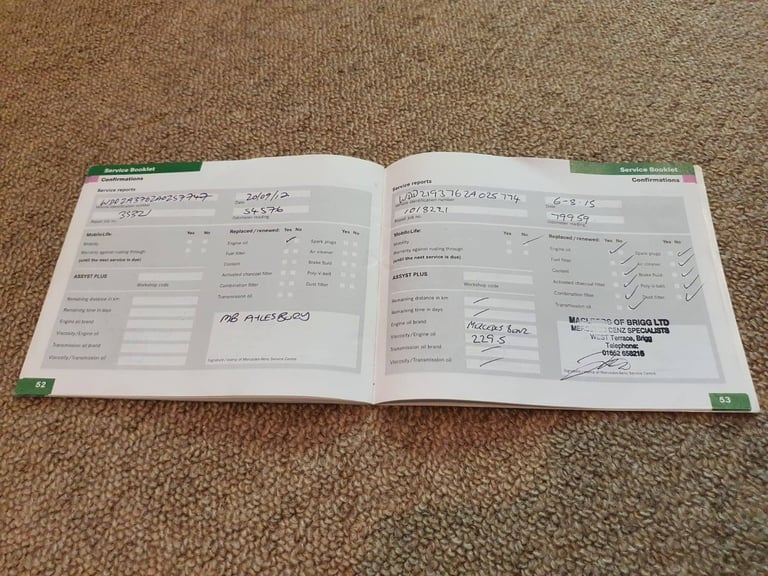 Service Booklet
Confirmations
Service reports
20/09/12
Date
33321
54576
Repair job no.
Odometer reading
MobiloLife: Yes No
Mobility
Warranty against rusting through
(until the next service is due)
ASSYST PLUS
Workshop code
Remaining distance in km
Remaining time in days
Engine oil brand
Viscosity/Engine oil
Transmission oil brand
Viscosity/Transmission oil
Replaced/renewed: Yes No Yes No
Engine oil Spark plugs
Fuel filter Air cleaner
Coolant Brake fluid
Activated charcoal filter Poly-V-belt
Combination filter Dust filter
Transmission oil
MB AYLESBURY
Signature/stamp of Mercedes-Benz Service Centre
52
Service Booklet
Confirmations
Service reports
WDD2193762A025774
6-8-15
Vehicle identification number
Date
1018221
79959
Repair job no.
Odometer reading
MobiloLife: Yes No
Mobility
Warranty against rusting through
(until the next service is due)
ASSYST PLUS
Workshop code
Remaining distance in km
Remaining time in days
Engine oil brand MERCEDES BENZ
Viscosity/Engine oil 229.5
Transmission oil brand
Viscosity/Transmission oil
Replaced/renewed: Yes No Yes No
Engine oil Spark plugs
Fuel filter Air cleaner
Coolant Brake fluid
Activated charcoal filter Poly-V-belt
Combination filter Dust filter
Transmission oil
OF BRIGG LTD
MERCEDES BENZ SPECIALISTS
WEST Terrace, Brigg
Telephone:
01652 658215
Signature/stamp of Mercedes-Benz Service Centre
53